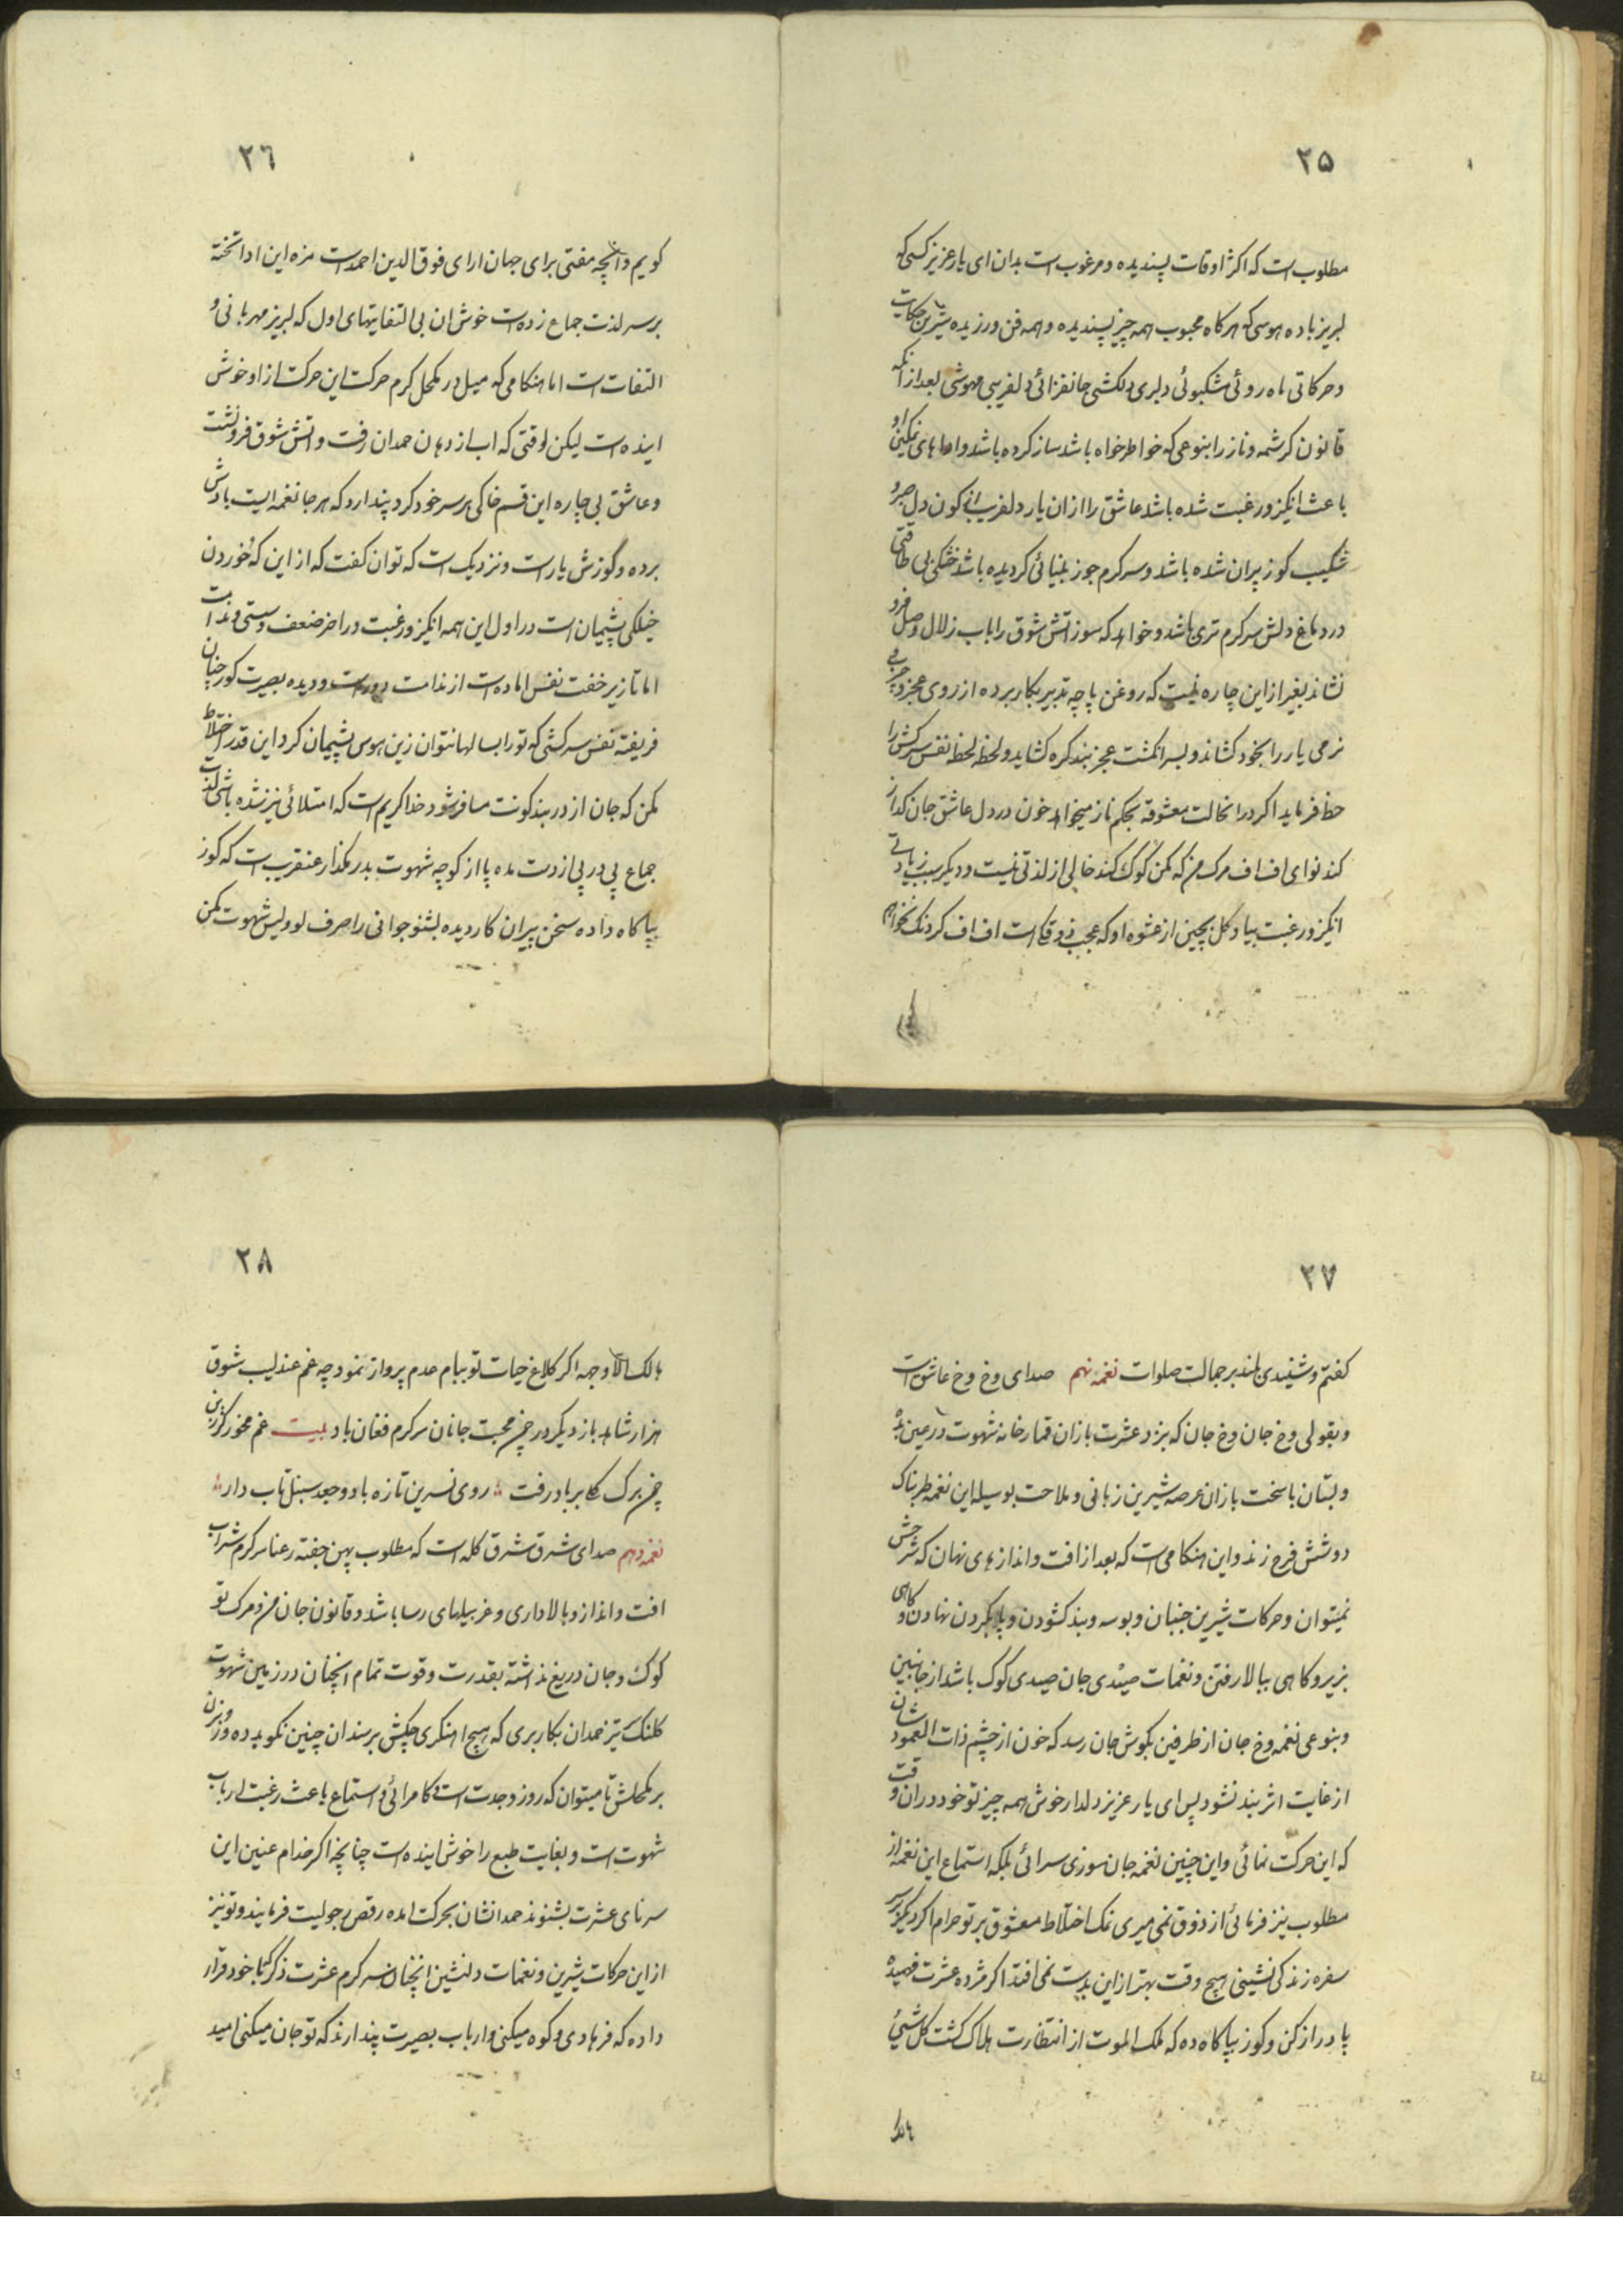 ۲۵
مطلوبست که اکثر اوقات پسندیده و مرغوبست بدان ای یار عزیز کسی که
لبریز باده هوسی که هرکاه محبوب همه چیز پسندیده و همه فن ورزیده شیرین حرکات
و حرکاتی ماه روئی مشکبوئی دلبری دلکشی جانفزائی دلفریبی مهوشی بعد از آنکه
قانون کرشمه و ناز را بنوعی که خواطرخواه باشد ساز کرده باشد و اداهای نمکین او
باعث انکیز و رغبت شده باشد عاشق را از ان یار دلفریب کون دل صبر و
شکیب کوز پران شده باشد و سرکرم جوز بنیائی کردیده باشد خشکی بی طاقتی
در دماغ دلش سرکرم تری باشد و خواهد که سوز اتش شوق را باب زلال وصل فرو
نشاند بغیر از این چاره نیست که روغن پاچه تدبیر بکار برده از روی عجز و چربی
نرمی یار را بخود کشاند و بسر انکشت عجز بند کره کشاید و لحظه لحظه نفس سرکش را
حظ فرماید اکر در انحالت معشوقه بحکم ناز میخواهد خون در دل عاشق جان کداز
کند نوای اف اف مرک من که مکن کوک کند خالی از لذتی نیست و دیکر سبب زیادتی
انکیز و رغبت بیاد کل بچین از عشوه او که عجب ذوقکیست اف اف کردنک نخواهم
۲٦
کویم و انچه مفتی برای جهان ارای فوق الدین احمد است مزه این ادا تخته
بر سر لذت جماع زده است خوش ان بی التفاتیهای اول که لبریز مهربانی و
التفات است اما هنکامی که میل در مکحل کرم حرکت این حرکت از او خوش
اینده است لیکن لوقتی که اب از دهان حمدان رفت و اتش شوق فرو نشست
و عاشق بی چاره این قسم خاکی بر سر خود کرد پندارد که هرجا نغمه ایست بادش
برده و کوزش یار است و نزدیکست که توان کفت که از این که خوردن
خیلکی پشیمان است در اول این همه انکیز و رغبت در اخر ضعف و سستی و ندامت
اما تا زیر خفت نفس اماده است از ندامت دور است و دیده بصیرت کور چنان
فریفته نفس سرکشی که تو را بسالها نتوان زین هوس پشیمان کرد این قدر اختلاط
مکن که جان از دربند کونت مسافر شود خدا کریم است که امتلائی نیز نشده باشی لذت
جماع پی در پی از دست مده پا از کوچه شهوت بدر مکذار عنقریب است که کوز
بپا کاه داده سخن پیران کار دیده بشنو جوانی را صرف لوولیش شهوت مکن
۲۷
کفتم و شنیدی بلند بر جمالت صلوات نغمه نهم صدای وخ وخ عاشق است
و بقولی وخ جان وخ جان که بزد عشرت بازان قمارخانه شهوت در عین
و بستان با سخت بازان عرصه شیرین زبانی و ملاحت بوسیله این نغمه طربناک
دو شش فرح زند و این هنکامی است که بعد از افت و اندازهای نهان که شرحش
نمیتوان و حرکات شیرین جنبان و بوسه و بند کشودن و پا بکردن نهادن و کاهی
بزیر و کاهی ببالا رفتن و نغمات صیدی جان صیدی کوک باشد از جانبین
و بنوعی نغمه وخ جان از طرفین بکوش جان رسد که خون از چشم ذات العمودشان
از غایت اثر بند نشود پس ای یار عزیز دلدار خوش همه چیز تو خود در ان وقت
که این حرکت نمائی و این چنین نغمه جان سوزی سرائی بلکه استماع این نغمه از
مطلوب نیز فرمائی از ذوق نمی میری نمک اختلاط معشوق بر تو حرام اکر دیکر بر سر
سفره زندکی نشینی هیچ وقت بهتر از این بدست نمی افتد اکر مژده عشرت فهمیده
پا دراز کن و کوز بپا کاه ده که ملک الموت از انتظارت هلاک کشت کل شیئ
هالک
۲۸
هالک الا وجهه اکر کلاغ حیات تو ببام عدم پرواز نمود چه غم عندلیب شوق
هزار شاهد باز دیکر در چمن محبت جانان سرکرم فغان باد بیت غم مخور کر زین
چمن برک کاه بر باد رفت روی نسرین تازه باد و جعد سنبل تاب دار
نغمه دهم صدای شرق شرق کله است که مطلوب پهن جفته رعنا سرکرم شراب
افت و انداز و بالاداری و غربیلهای رسا باشد و قانون جان من و مرک تو
کوک و جان دریغ نداشته بقدرت و قوت تمام انچنان در زمین شهوت
کلنک تیز حمدان بکار بری که هیچ اهنکری چکش بر سندان چنین نکوبیده و زنبرن
بر مکحلش تا میتوان که روز وجدت است کامرائی و استماع باعث رغبت ارباب
شهوت است و بغایت طبع را خوش اینده است چنانچه اکر خدام عنین این
سرنای عشرت بشنوند حمدانشان بحرکت امده رقص رجولیت فرمایند و تو نیز
از این حرکات شیرین و نغمات دلنشین انچنان سرکرم عشرت ذکر کا با خود قرار
داده که فرهادی و کوه میکنی و ارباب بصیرت پندارند که تو جان میکنی امید